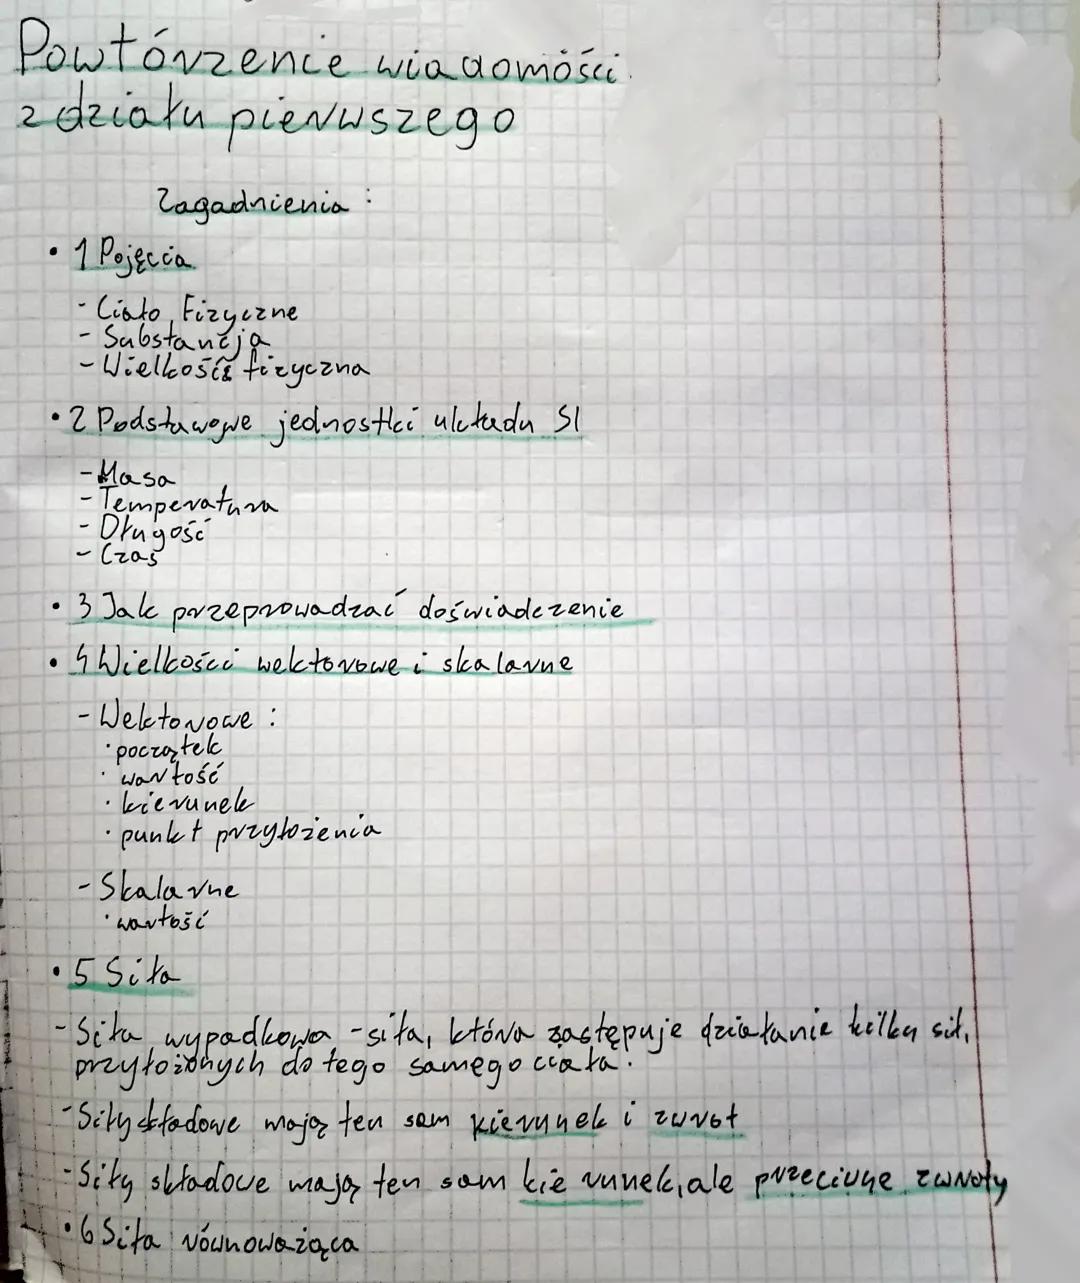 Powtórzenie wiadomości
z działu pierwszego
Zagadnienia:
• 1 Pojęcia
- Ciało Fizyczne
- Substancja
- Wielkość fizyczna
• 2 Podstawowe jednostki układu SI
- Masa
- Temperatura
- Długość
- Czas
• 3 Jak przeprowadzać doświadczenie
• 4 Wielkości wektorowe i skalarne
- Wektorowe :
· początek
· wartość
· kierunek
· punkt przyłożenia
- Skalarne
· wartość
• 5 Siła
- Siła wypadkowa - siła, która zastępuje działanie kilku sił,
przyłożonych do tego samego ciała.
- Siły składowe mają ten sam kierunek i zwrot
- Siły składowe mają ten sam kierunek, ale przeciwne zwroty
• 6 Siła równoważąca